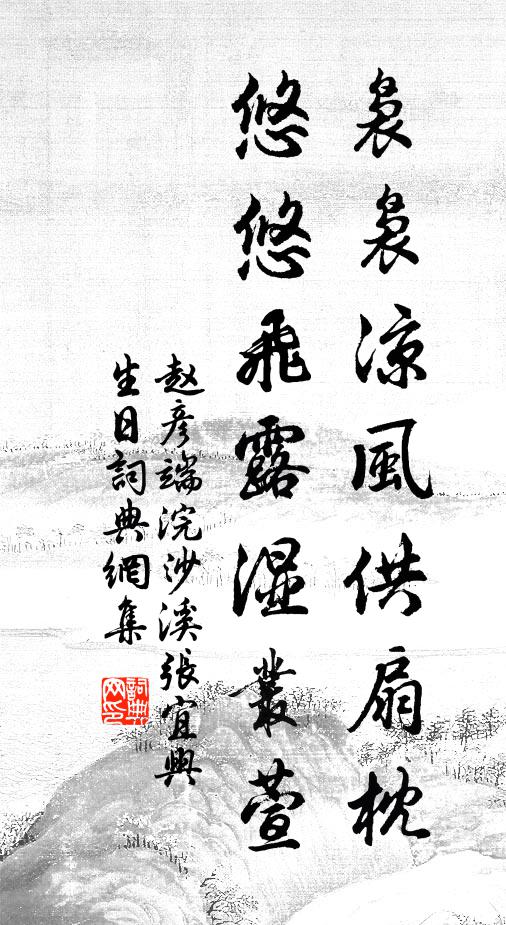 裊裊涼風供扇枕
悠悠飛露濕叢萱
赵彥端浣沙溪張宜興
生日詞典網集
詞典网印